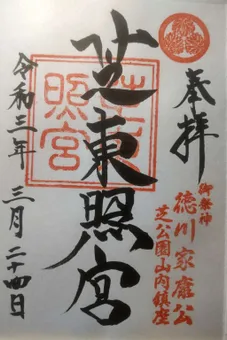 奉拝
御祭神
徳川家康公
芝公園山内鎮座
芝東照宮
芝東照宮
令和三年 三月 二十四日